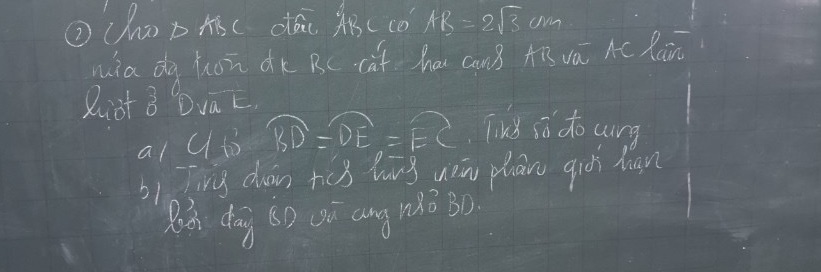 ② Cho △ ABC đều ABC có AB = 2√3 cm.
nửa đg tròn đk BC cắt hai cạnh AB và AC lần
lượt ở D và E.
a/ C/tỏ BD = DE = EC. Tính số đo cung
b/ Tính diện tích hình viên phân giới hạn
bởi dây BD và cung nhỏ BD.